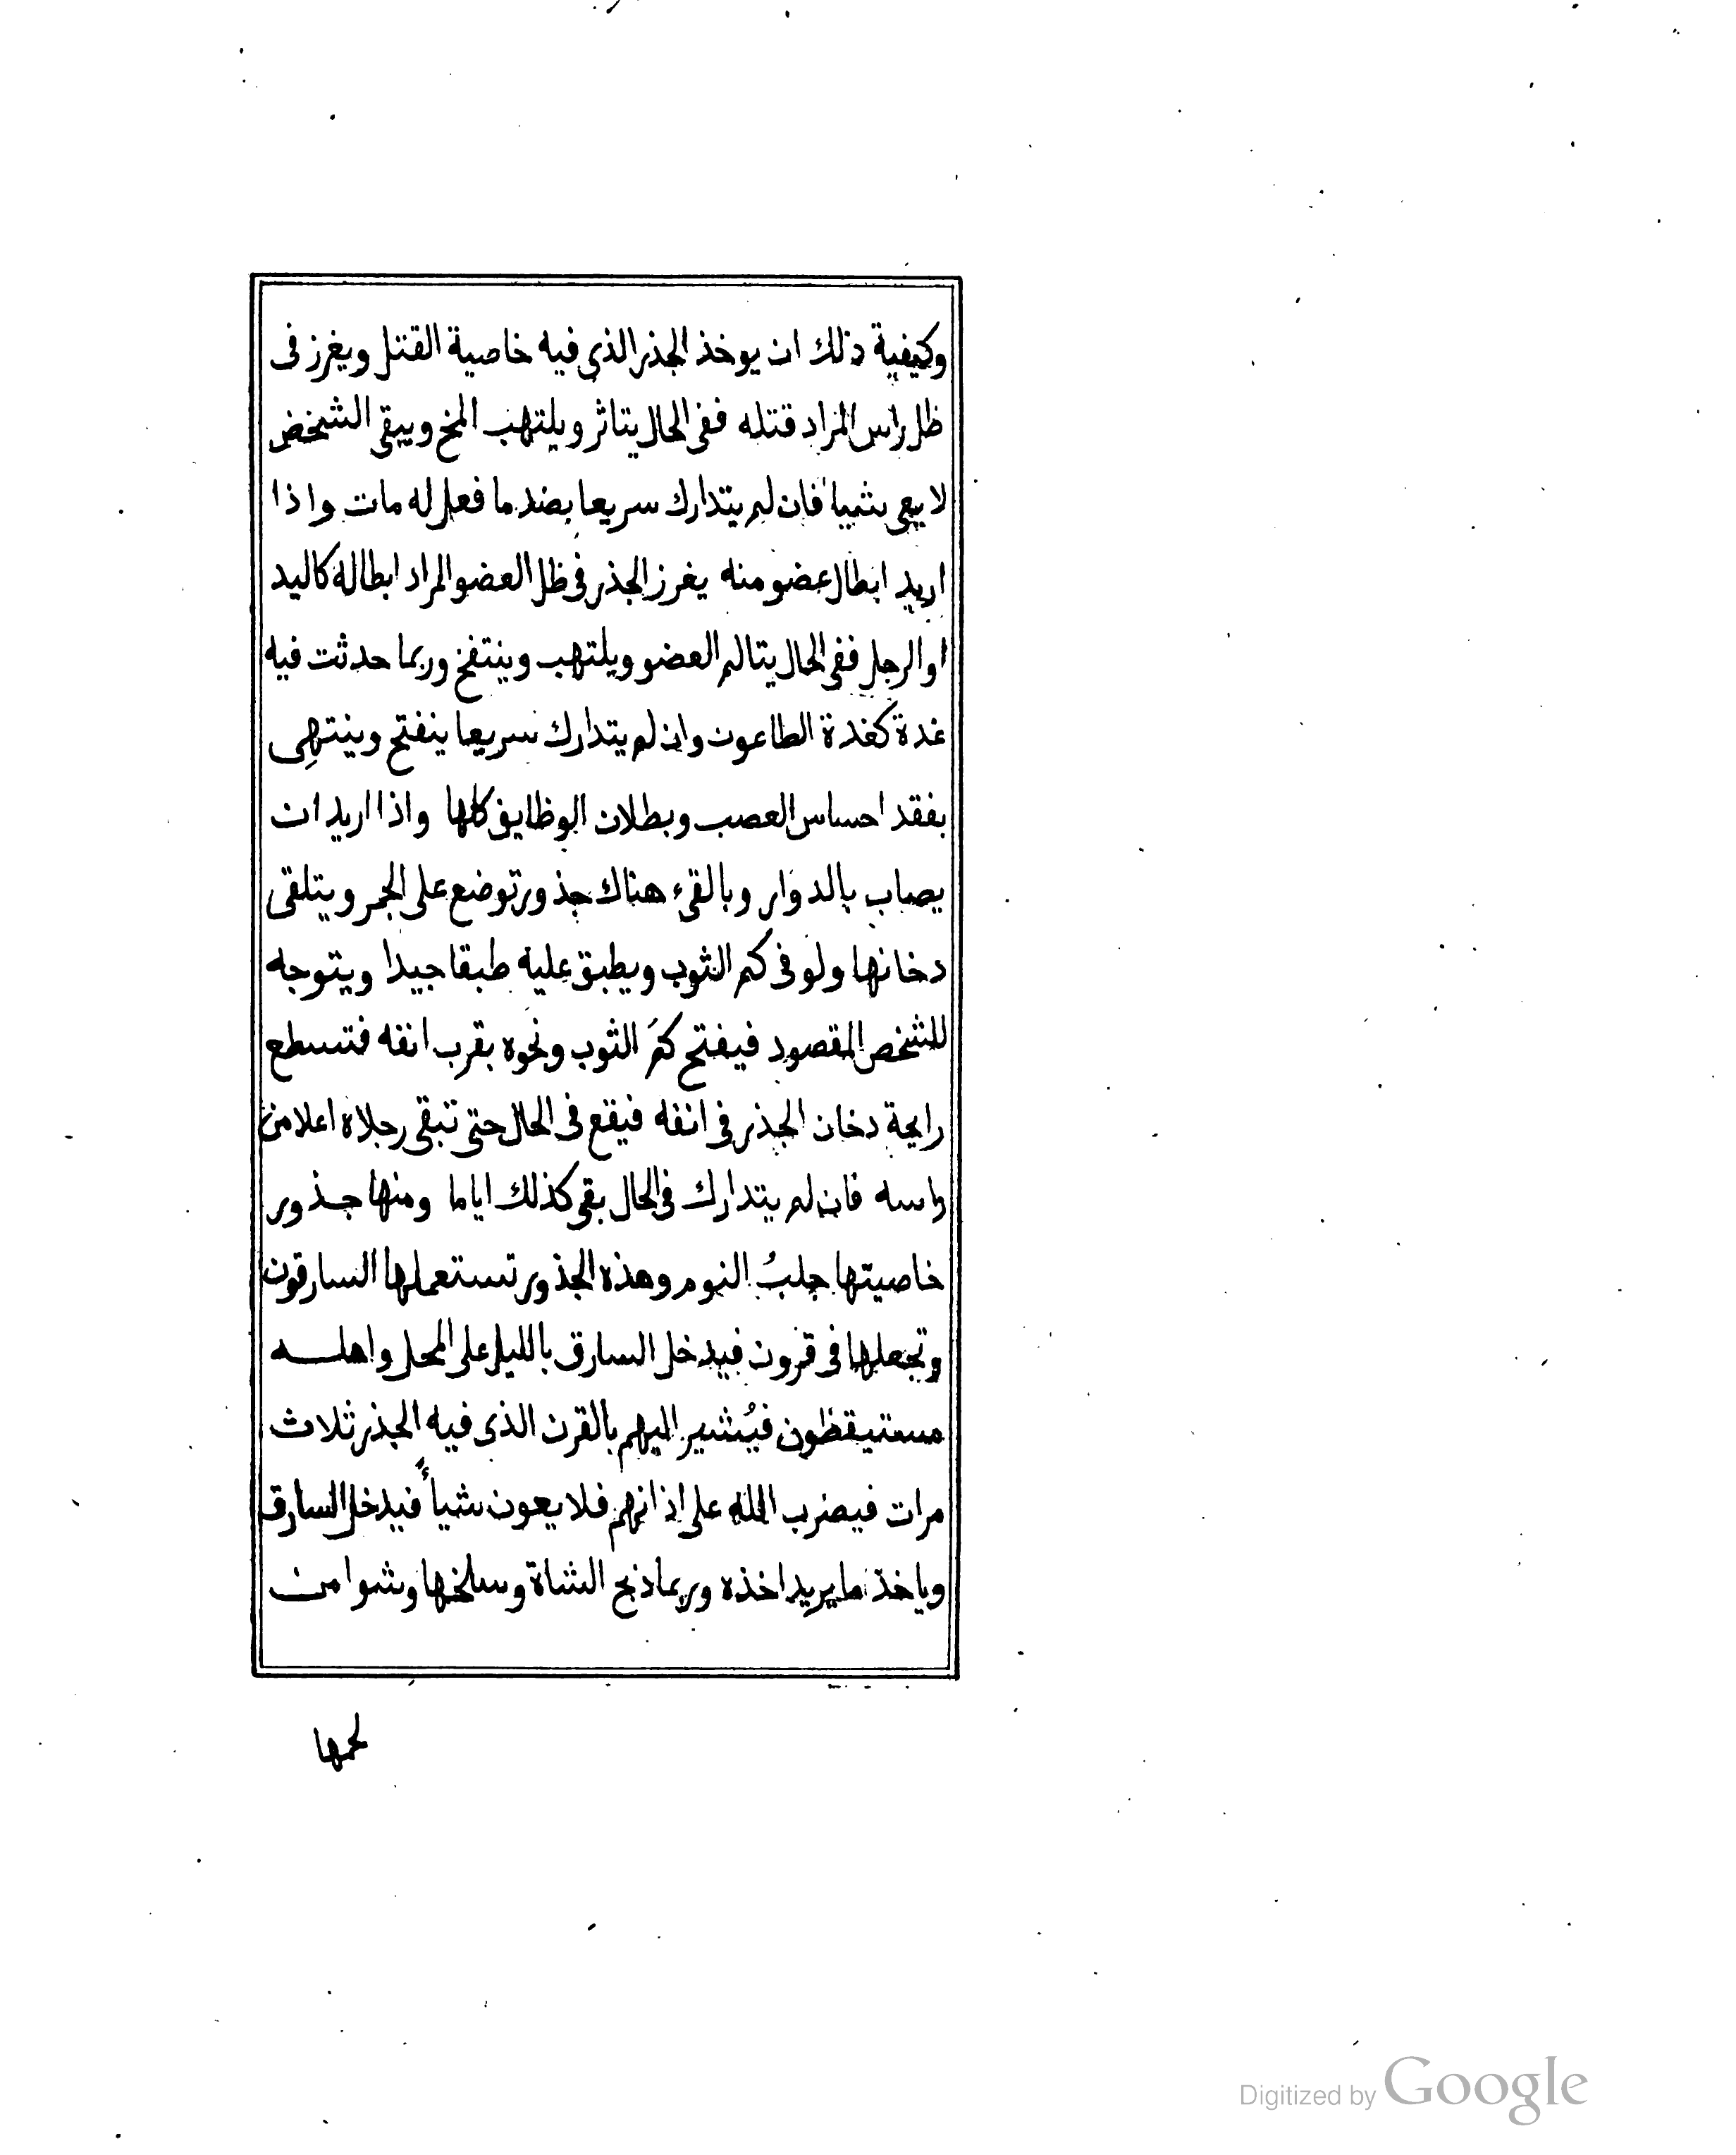 وكيفية ذلك ان يوخذ الجذر الذى فيه خاصية القتل ويغرز فى
ظل راس المراد قتله ففى الحال يتاثر ويلتهب المخ ويبقى الشخص
لا يعى شيا فان لم يتدارك سريعا بضد ما فعل له مات واذا
اريد ابطال عضو منه يغرز الجذر فى ظل العضو المراد ابطاله كاليد
او الرجل ففى الحال يتالم العضو ويلتهب وينتفخ وربما حدثت فيه
غدة كغدة الطاعون وان لم يتدارك سريعا ينفتح وينتهِى
بفقد احساس العصب وبطلان الوظايف كلها واذا اريد ان
يصاب بالدوار وبالقىء هناك جذور توضع على الجمر ويتلقى
دخانها ولو فى كم الثوب ويطبق عليه طبقا جيدا ويتوجه
للشخص المقصود فيفتح كمُ الثوب ونحوه بقرب انفه فتسطع
رايحة دخان الجذر فى انفه فيقع فى الحال حتى تبقى رجلاه اعلا من
راسه فان لم يتدارك فى الحال بقى كذلك اياما ومنها جذور
خاصيتها جلبُ النوم وهذه الجذور تستعملها السارقون
وتجعلها فى قرون فيدخل السارق بالليل على المحل واهله
مستيقظون فيُشير اليهم بالقرن الذى فيه الجذر ثلاث
مرات فيضرب الله على اذانهم فلا يعون شياً فيدخل السارق
وياخذ ما يريد اخذه وربما ذبح الشاة وسلخها وشوا من
لحمها
Digitized by Google